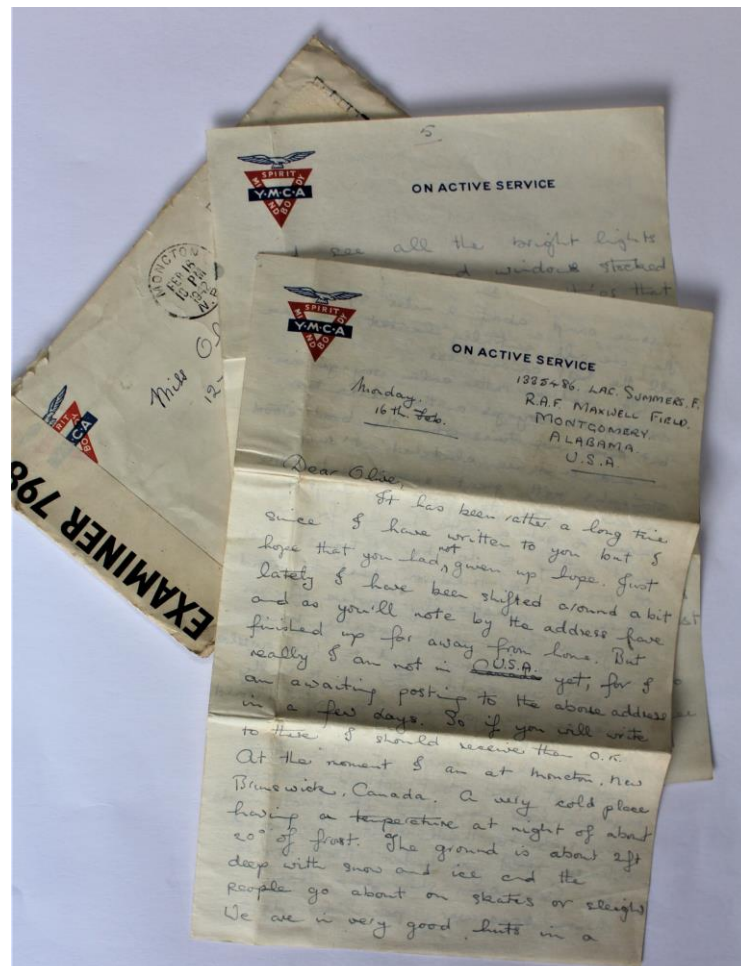 5
SPIRIT
MIND
BODY
Y·M·C·A
ON ACTIVE SERVICE
see all the bright lights
and windows stocked
that
MONCTON
FEB 16
PM
Miss Ol
12-
EXAMINER 798
SPIRIT
MIND
BODY
Y·M·C·A
ON ACTIVE SERVICE
Monday.
16th Feb.
1335486. LAC. SUMMERS. F.
R.A.F. MAXWELL FIELD.
MONTGOMERY.
ALABAMA
U.S.A
Dear Olive,
It has been rather a long time
since I have written to you but I
hope that you had not given up hope. Just
lately I have been shifted around a bit
and as you'll note by the address have
finished up far away from home. But
really I am not in U.S.A. yet, for I
am awaiting posting to the above address
in a few days. So if you will write
to there I should receive them O.K.
At the moment I am at Moncton, New
Brunswick, Canada. A very cold place
having a temperature at night of about
20° of frost. The ground is about 2ft
deep with snow and ice and the
people go about on skates or sleighs
We are in very good huts in a